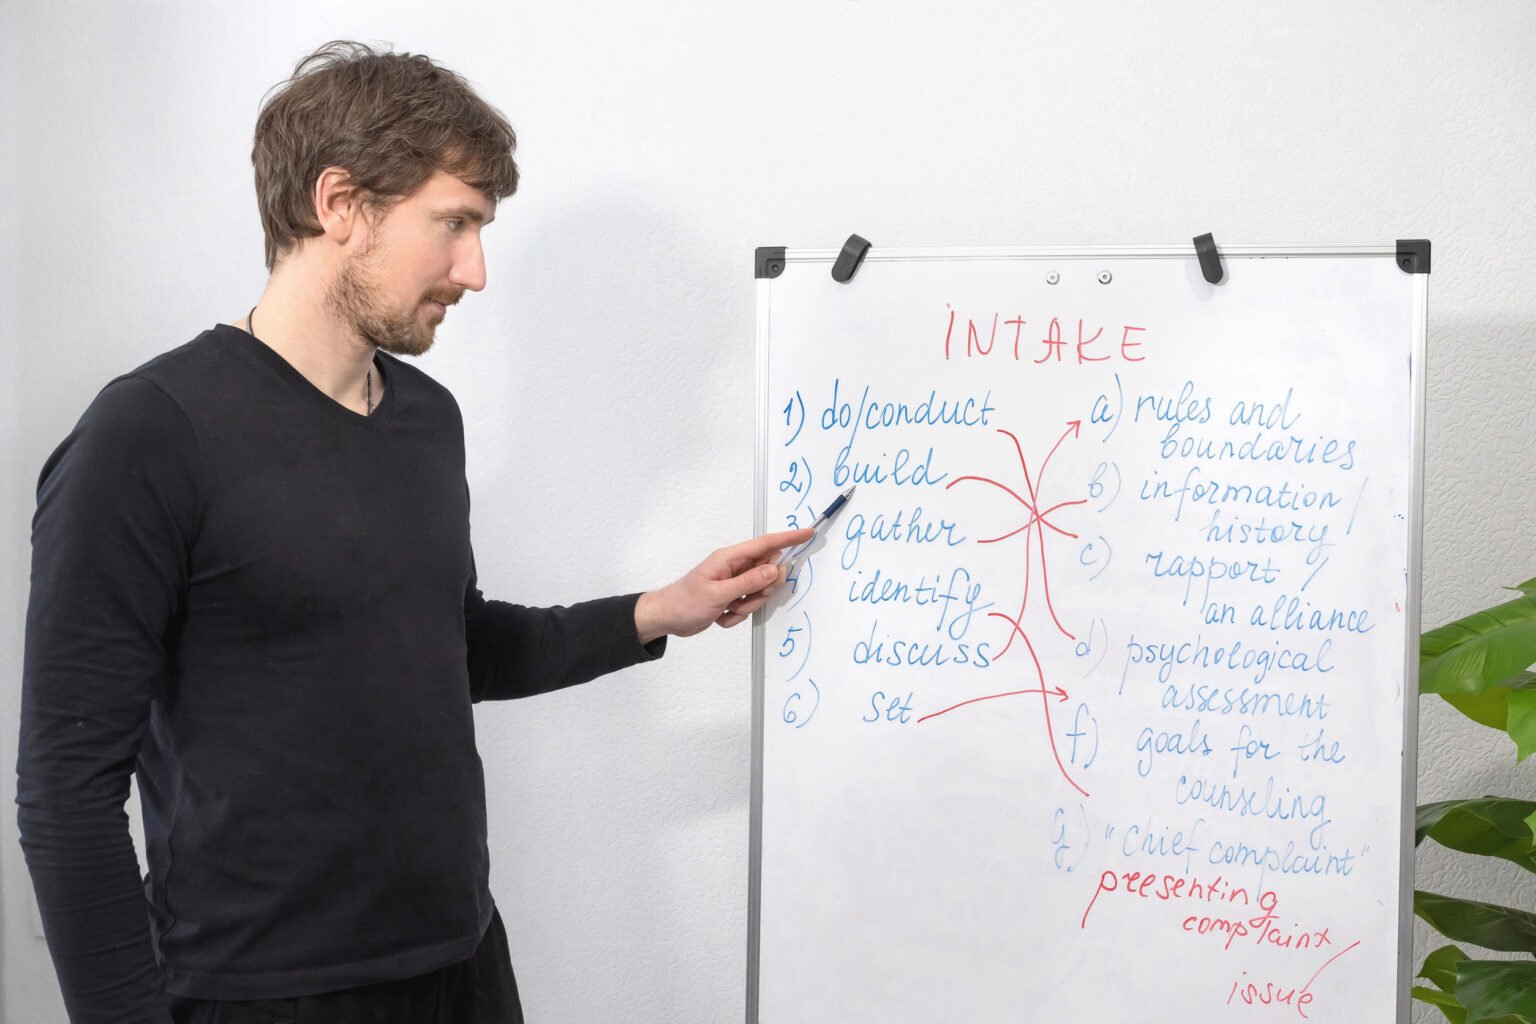 INTAKE
1) do/conduct
2) build
3) gather
4) identify
5) discuss
6) set
a) rules and
boundaries
b) information /
history
c) rapport /
an alliance
d) psychological
assessment
f) goals for the
counseling
g) "chief complaint"
presenting
complaint /
issue